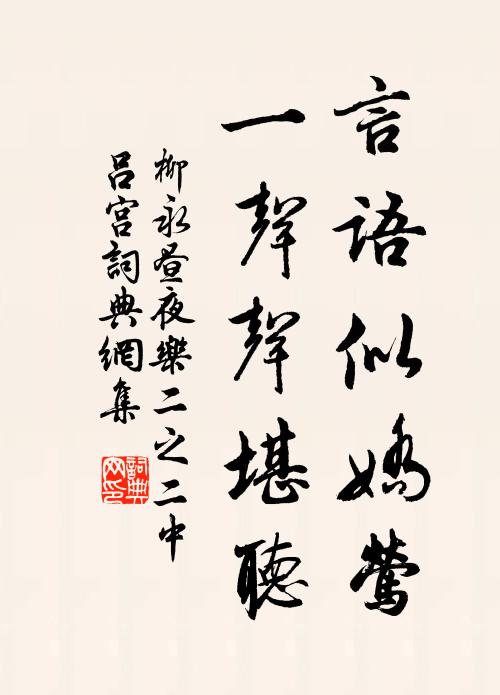 言語似嬌鶯
一聲聲堪聽
柳永晝夜樂二之二中
呂宮詞典網集
詞典網印